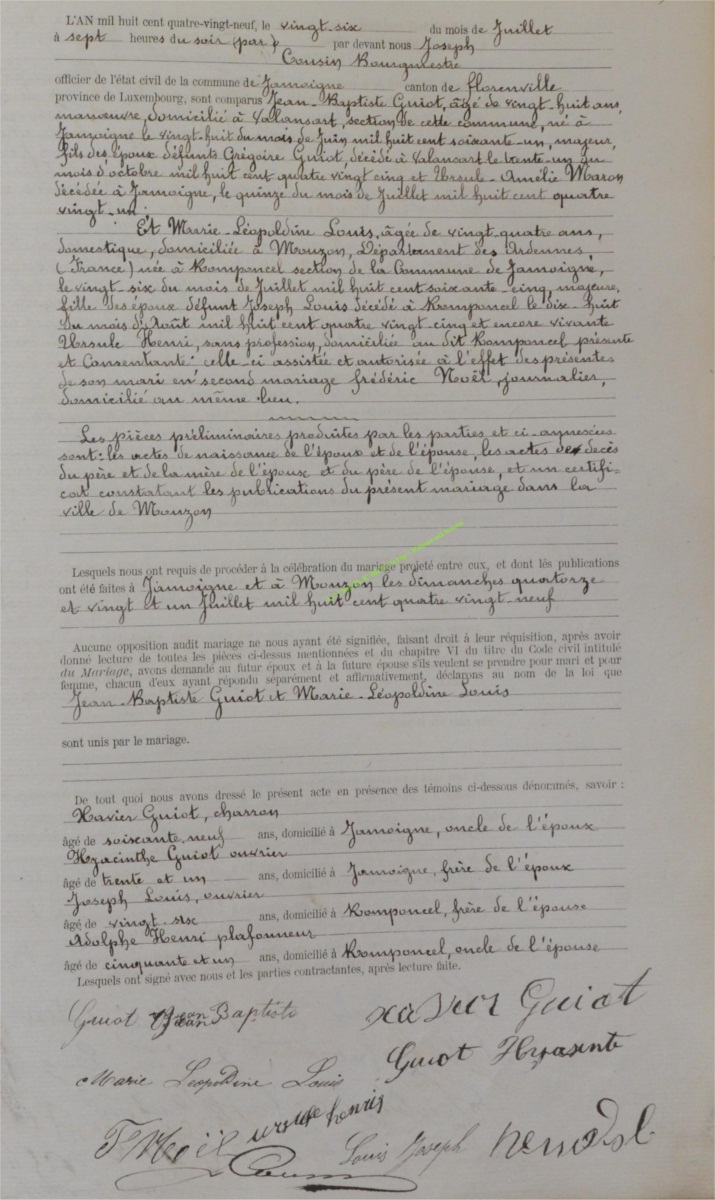 L'AN mil huit cent quatre-vingt-neuf, le vingt-six du mois de Juillet
à sept heures du soir (par) par devant nous Joseph
Cousin Bourgmestre
officier de l'état civil de la commune de Jamoigne canton de florenville
province de Luxembourg, sont comparus Jean-Baptiste Guiot, âgé de vingt-huit ans,
manœuvre, domicilié à Valansart, section de cette commune, né à
Jamoigne le vingt-huit du mois de Juin mil huit cent soixante-un, majeur,
fils des époux défunts Grégoire Guiot, décédé à Valansart le trente-un du
mois d'octobre mil huit cent quatre vingt cinq et Ursule-Amélie Maron
décédée à Jamoigne, le quinze du mois de Juillet mil huit cent quatre
vingt-un.
Et Marie-Léopoldine Louis, âgée de vingt-quatre ans,
domestique, domiciliée à Mouzon, Département des Ardennes
(France) née à Romponcel section de la Commune de Jamoigne,
le vingt six du mois de Juillet mil huit cent soixante-cinq, majeure,
fille des époux défunt Joseph Louis décédé à Romponcel le dix-huit
du mois d'Août mil huit cent quatre vingt cinq et encore vivante
Ursule Henri, sans profession, domiciliée au dit Romponcel présente
et Consentante: celle-ci assistée et autorisée à l'effet des présentes
de son mari en second mariage frédéric Noël, journalier,
domicilié au même lieu.
Les pièces préliminaires produites par les parties et ci-annexées
sont: les actes de naissance de l'époux et de l'épouse, les actes de decès
du père et de la mère de l'époux et du père de l'épouse, et un certifi-
cat constatant les publications du présent mariage dans la
ville de Mouzon
Lesquels nous ont requis de procéder à la célébration du mariage projeté entre eux, et dont les publications
ont été faites à Jamoigne et à Mouzon les dimanches quatorze
et vingt et un Juillet mil huit cent quatre vingt-neuf
Aucune opposition audit mariage ne nous ayant été signifiée, faisant droit à leur réquisition, après avoir
donné lecture de toutes les pièces ci-dessus mentionnées et du chapitre VI du titre du Code civil intitulé
du Mariage, avons demandé au futur époux et à la future épouse s'ils veulent se prendre pour mari et pour
femme, chacun d'eux ayant répondu séparément et affirmativement, déclarons au nom de la loi que
Jean-Baptiste Guiot et Marie-Léopoldine Louis
sont unis par le mariage.
De tout quoi nous avons dressé le présent acte en présence des témoins ci-dessous dénommés, savoir :
Xavier Guiot, charron
âgé de soixante-neuf ans, domicilié à Jamoigne, oncle de l'époux
Hyacinthe Guiot ouvrier
âgé de trente et un ans, domicilié à Jamoigne, frère de l'époux
Joseph Louis, ouvrier
âgé de vingt-six ans, domicilié à Romponcel, frère de l'épouse
Adolphe Henri plafonneur
âgé de cinquante et un ans, domicilié à Romponcel, oncle de l'épouse
Lesquels ont signé avec nous et les parties contractantes, après lecture faite.
Guiot Jean Baptiste
xavier Guiot
Guiot Hyasinte
Marie Léopoldine Louis
F Noël ursule henri
Louis Joseph
Cousin